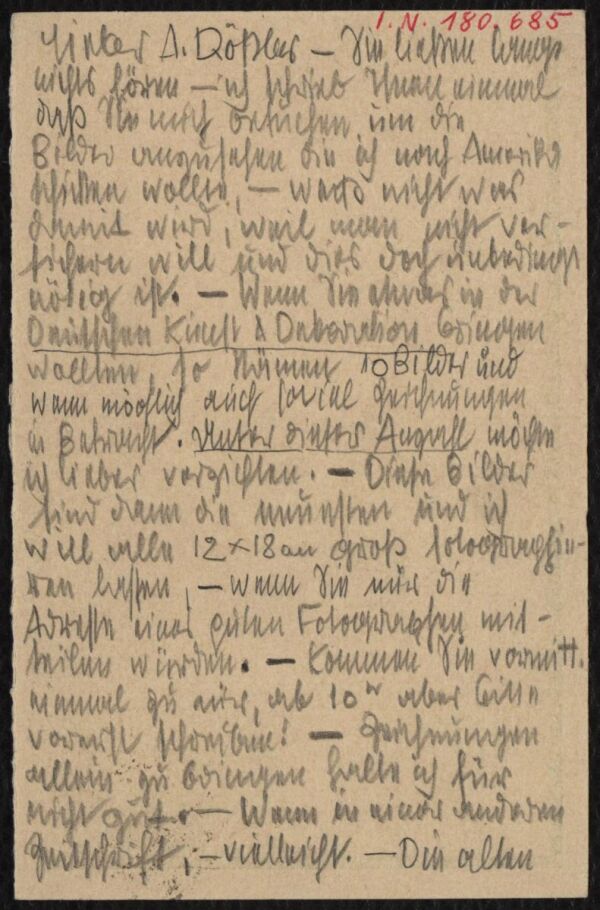 I.N. 180.685
Lieber A. Rößler – Sie ließen lange
nichts hören – ich schrieb Ihnen einmal
daß Sie mich besuchen, um die
Bilder anzusehen die ich nach Amerika
schicken wollte, – weiß nicht was
damit wird, weil man nicht ver-
sichern will und dies doch unbedingt
nötig ist. – Wenn Sie etwas in der
Deutschen Kunst & Dekoration bringen
wollten, so kämen 10 Bilder und
wenn möglich auch soviel Zeichnungen
in Betracht. Unter dieser Anzahl möchte
ich lieber verzichten. – Diese Bilder
sind dann die neuesten und ich
will alle 12 × 18 cm groß fotografie-
ren lassen, – wenn Sie mir die
Adresse eines guten Fotographen mit-
teilen würden. – Kommen Sie vormitt.
einmal zu mir, ab 10ʰ aber bitte
vorerst schreiben! – Zeichnungen
allein zu bringen halte ich für
nicht gut. – Wenn in einer anderen
Zeitschrift, – vielleicht. – Die alten